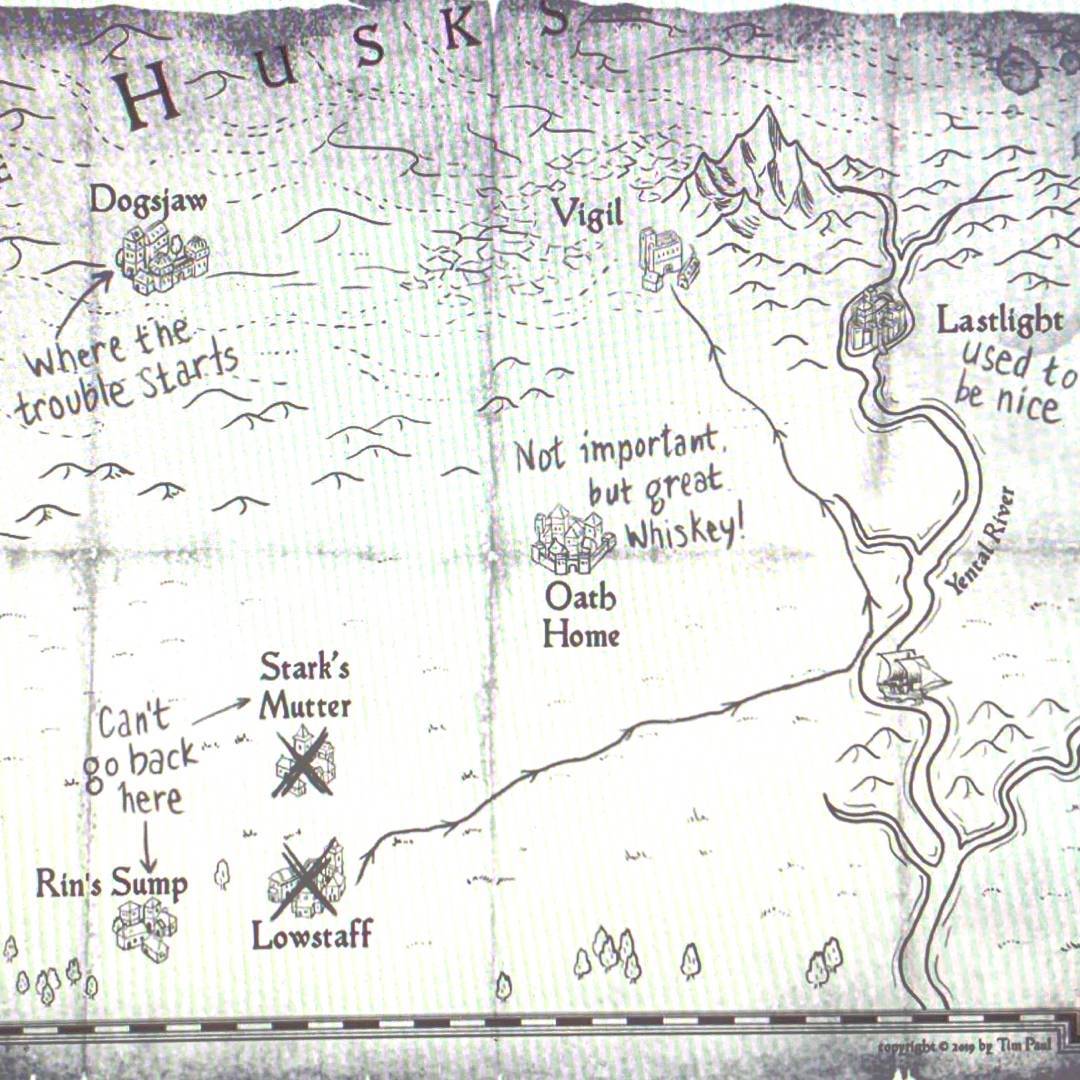 HUSKS
Dogsjaw
Vigil
Where the
trouble starts
Lastlight
used to
be nice
Not important,
but great
Whiskey!
Oath
Home
Yental River
Stark's
Mutter
Can't
go back
here
Rin's Sump
Lowstaff
copyright © 2019 by Tim Paul